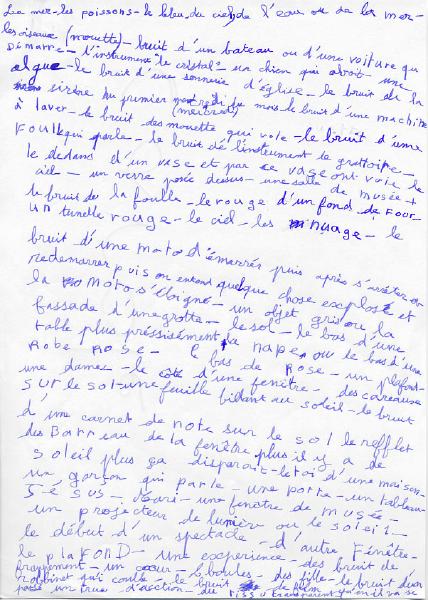 La mer - les poissons - le bleu du ciel, de l'eau ou de la mer -
les oiseaux (mouette) - bruit d'un bateau ou d'une voiture qui
Démarre - l'instrument "le cristal" - un chien qui aboit - une
algue - le bruit d'une sonnerie d'église - le bruit de la
sirène du premier mercredi du mois - le bruit d'une machine
(mercredi)
à laver - le bruit des mouette qui vole - le bruit d'une
Foule qui parle - le bruit de l'instrument le grattoire -
le dedans d'un vase et par ce vase ont voie le
ciel - un verre posée dessus - une salle de musée +
le bruit de la foulle - le rouge d'un fond de four -
un tunelle rouge - le ciel - les nuage - le
bruit d'une moto démarrée puis après s'arrêter ou
redemarrer puis on entend quelque chose explosé et
la moto s'éloigné - un objet gris ou la
fassade d'une grotte - le sol - le bas d'une
table plus préssisément la nape ou le bas d'une
Robe Rose - le bas de Rose - un plafond -
une dame - le côté d'une fenêtre - des carreause
sur le sol - une feuille au soleil - le bruit
d'une carnet de note sur le sol le refflet
des Barreau de la fenêtre plus il y a de
soleil plus ça disparait - le toi d'une maison -
un garçon qui parle - une porte - un tableau -
Jésus - une fenetre de musée -
un projecteur de lumière ou le soleil -
le début d'un spectacle - d'autre Fenêtre -
le plaFOND - une experience - des bruit de
frappement - un cœur - boules - des fille - le bruit d'un
robbinet qui coulle - le bruit d'un
passé un truc d'action - du tissu transparent qu'on il va se